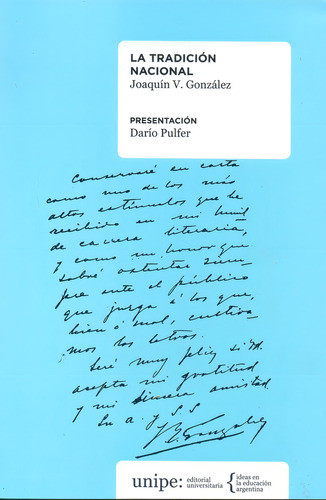 LA TRADICIÓN
NACIONAL
Joaquín V. González
PRESENTACIÓN
Darío Pulfer
Conservaré su carta
como uno de los más
altos estímulos que he
recibido en mi humil
de carrera literaria,
y como un honor que
sabré ostentar siem
pre ante el público
que juzga á los que,
bien ó mal, cultiva
mos las letras.
Seré muy feliz si Vd.
acepta mi gratitud
y mi sincera amistad
Su a. y S. S.
J. V. González
unipe:
editorial
universitaria
ideas en
la educación
argentina